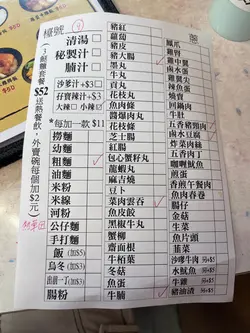 檯號
(3餸麵套餐$52送熱餐飲，外賣碗每個加$2元)
清湯
秘製汁
腩汁
沙爹汁+$3
大辣 小辣
*每加一款 $11
撈麵
幼麵
粗麵
油麵
米粉
米線
河粉
公仔麵
手打麵
飯 (加$5)
烏冬 (加$3)
出前一丁(加$3)
腸粉
豬紅
蘿蔔
豬皮
豬大腸
墨丸
牛丸
貢丸
花枝丸
醬爆肉丸
花枝片
魚肉條
芝麻丸
包心蟹籽丸
龍蝦丸
麻吉燒
豆卜
菜肉雲吞
魚皮餃
黑椒牛丸
蟹柳
齋面根
牛柏葉
冬菇
魚蛋
牛腩
鳳爪
雞腎
雞中翼
鹵水蛋
雞翼尖
燒賣
回鍋肉
牛肚
五香豬頸肉
鹵水豆腐
炸菜肉絲
五香肉丁
咖喱魷魚
煎蛋
香煎午餐肉
魚肉春卷
腸仔
金菇
生菜
魚片頭
韮菜
沙嗲牛肉
水魷魚
牛雜
豬油渣